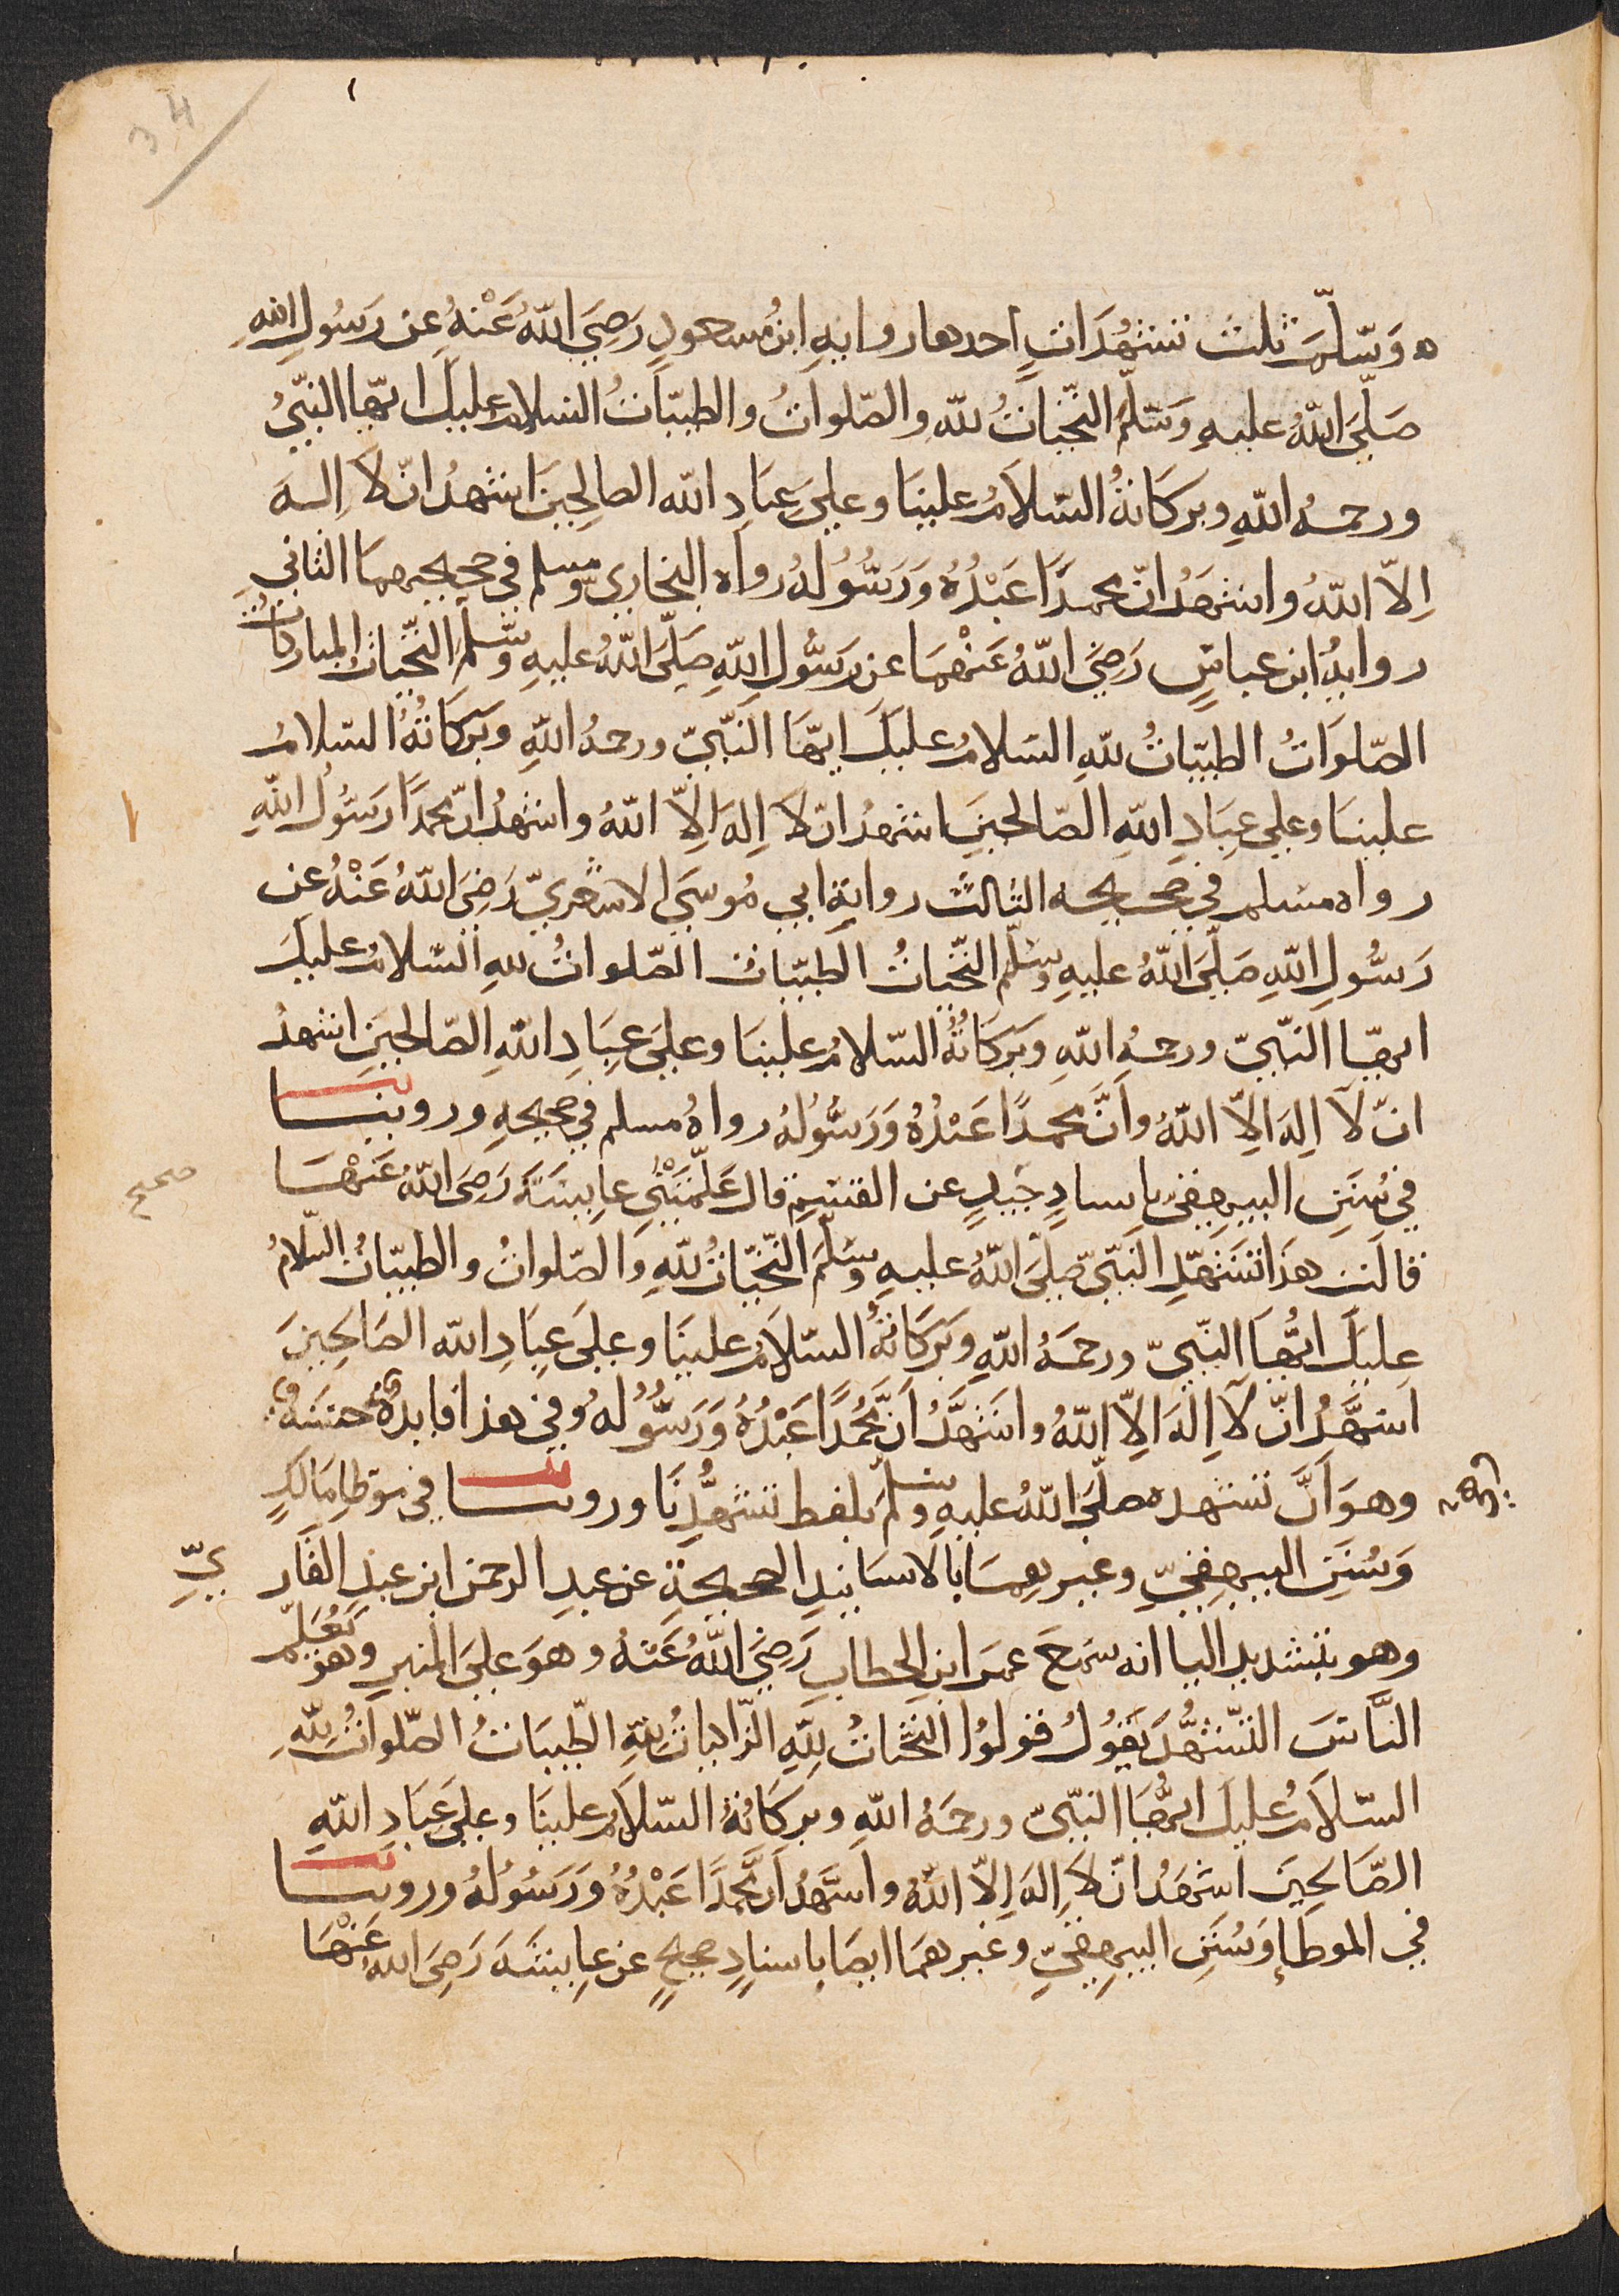 34
ه وَسَّلم ثلث تشهُّدَاتٍ احدها روايهِ ابنُ مسعودٍ رَضِيَ اللّهُ عَنْهُ عن رَسُولِ اللهِ
صَلَّيَ اللّهُ عليهِ وَسَلَّمَ التَّحيَّاتُ للّهِ والصّلواتُ والطيبّاتُ السلام عليكَ ايّها النَّبِيُّ
ورحمهُ اللّهِ وبركاتهُ السّلامُ علينَا وعليَ عِبَادِ اللّه الصالحِينَ اشهدُ انّ لاَ اِلهَ
اِلاّ اللّهُ واشهَدُ انّ محمدًا عَبْدُهُ وَرَسُولُهُ رواه البخاري ومسلم في صحيحيهما الثاني
روايهُ ابن عباسٍ رَضِيَ اللّهُ عَنْهُمَا عن رَسُول اللّهِ صَلّيَ اللّهُ عليهِ وسَلَّمَ التَّحيّاتُ المباركاتُ
الصّلَوَاتُ الطيبّاتُ للّهِ السَلامُ عليكَ ايّهَا النَّبِيّ ورحمهُ اللّهِ وبَرَكَاتُهُ السّلامُ
علينَا وعلي عِبَادِ اللّهِ الصّالحينَ اشهدُ انّ لاَ اِلهَ اِلاّ اللّهُ واشهدُ انّ محمدًا رَسُولُ اللّهِ
رواه مسلم في صحيحه الثالث روايةِ ابي مُوسَي الاشعريّ رَضِيَ اللّهُ عَنْهُ عن
رَسُولِ اللّهِ صَلَّيَ اللّهُ عليهِ وسَلَّم التَّحيّاتُ الطيبّات الصّلواتُ للهِ السّلامُ عليكَ
ايهّا النَّبِيّ ورحمهُ اللّهِ وبَرَكَاتُهُ السّلامُ علينَا وعليَ عِبَادِ اللّهِ الصّالحينَ اشهدُ
انّ لآ اِلهَ اِلاّ اللّهُ وانَّ محمدًا عَبْدُهُ وَرَسُولُهُ رواهُ مسلم في صحيحهِ وروينا
في سُنَنِ البيهقي باسنادٍ جيدٍ عن القسم قال عَلّمَتْنِي عايِشَةَ رَضِيَ اللّهُ عَنْهَا
صحيح
قالت هذا تشهّد النَّبِيّ صليَ اللّهُ عليهِ وسَلَّمَ التَّحيّاتُ للّهِ والصّلواتُ والطيبّاتُ السّلامُ
عليكَ ايُّهَا النَّبيّ ورحمَهُ اللّهِ وبَرَكَاتهُ السّلاَمُ علينَا وعليَ عِبَادِ اللّه الصَالحِينَ
اشهَدُ انّ لآ اِلهَ اِلاّ اللّهُ واشهَدُ اَنَّ مُحمَّدًا عَبْدُهُ وَرَسُولُهُ وفي هذا فايدهٌ حسَنهٌ
وهوَ اَنَّ تشهده صلّيَ اللّهُ عليهِ وسلمَ بلفظ تشهُّدِنَا وروينا في موَطا مَالكٍ
وَسُنَنِ البيهقيّ وغيرهمَا بالاسَانيدِ الصحيحةِ عن عبدِ الرحمن ابن عَبدِ القَارِ
يِّ
وهو بتشديد اليا انه سَمعَ عمر ابن الخطاب رَضِيَ اللّهُ عَنهُ وهوَ عليَ المنبرِ وهوَ يُعَلّم
النَّاسَ التّشهُّدَ يَقُولُ قولوُا التَّحيّاتُ للهِ الزّاكياتُ للهِ الطّيبَاتُ الصّلواتُ للّهِ
السّلاَمُ عليكَ ايُّهَا النَّبيّ ورحمَهُ اللّهِ وبركَاتُهُ السّلاَمُ علينَا وعليَ عِبَادِ اللّهِ
الصّالحِينَ اشهَدُ انّ لاَ اِلهَ اِلاّ اللّهُ واشهَدُ انَّ محمَّدًا عَبْدُهُ وَرَسُولُهُ وروينا
في الموطَاِ وَسُنَنِ البيهقيّ وغيرهمَا ايضَا باسنادٍ صحيحٍ عن عايشَهَ رَضِيَ اللهُ عَنْهَا